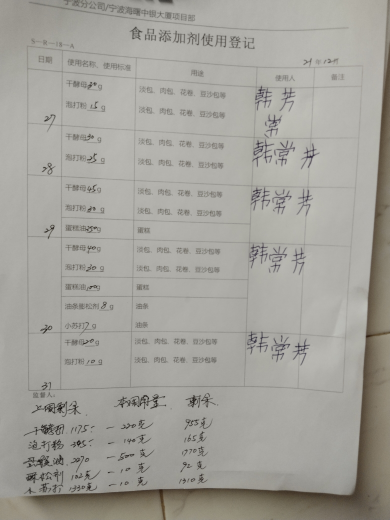 宁波分公司/宁波海曙中银大厦项目部
食品添加剂使用登记
S-R-18-A
21年12月
日期 使用名称、使用标准 用途 使用人 备注
干酵母 g 淡包、肉包、花卷、豆沙包等 韩芳
泡打粉 15 g 淡包、肉包、花卷、豆沙包等 常
27
干酵母 g 淡包、肉包、花卷、豆沙包等 韩常芳
泡打粉 25 g 淡包、肉包、花卷、豆沙包等
28
干酵母 45 g 淡包、肉包、花卷、豆沙包等 韩常芳
泡打粉 g 淡包、肉包、花卷、豆沙包等
29 蛋糕油 g 蛋糕
干酵母 40 g 淡包、肉包、花卷、豆沙包等 韩常芳
泡打粉 30 g 淡包、肉包、花卷、豆沙包等
蛋糕油 g 蛋糕
油条膨松剂 8 g 油条
30 小苏打 7 g 油条
干酵母 20 g 淡包、肉包、花卷、豆沙包等 韩常芳
泡打粉 10 g 淡包、肉包、花卷、豆沙包等
31
监督人:
上周剩余 本周用量 剩余
干酵母 1175 - 220克 955克
泡打粉 - 140克 165克
2270 - 500克 1770克
102克 - 10克 92克
小苏打 - 10克 1310克